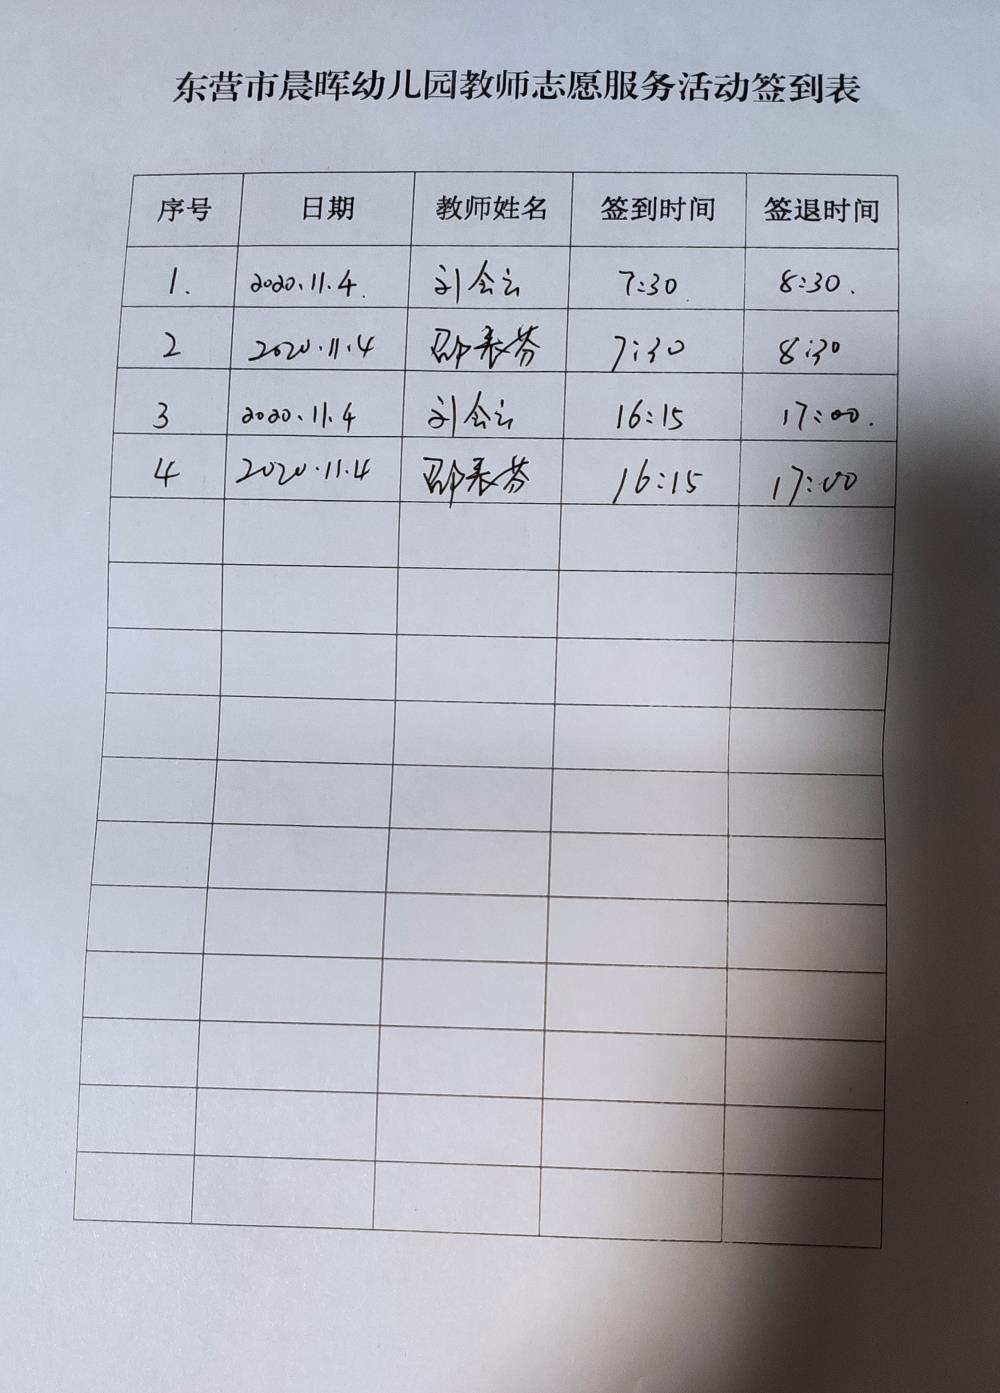 东营市晨晖幼儿园教师志愿服务活动签到表
序号 日期 教师姓名 签到时间 签退时间
1. 2020.11.4. 刘会云 7:30. 8:30.
2 2020.11.4 邵表芬 7:30 8:30
3 2020.11.4 刘会云 16:15 17:00.
4 2020.11.4 邵表芬 16:15 17:00